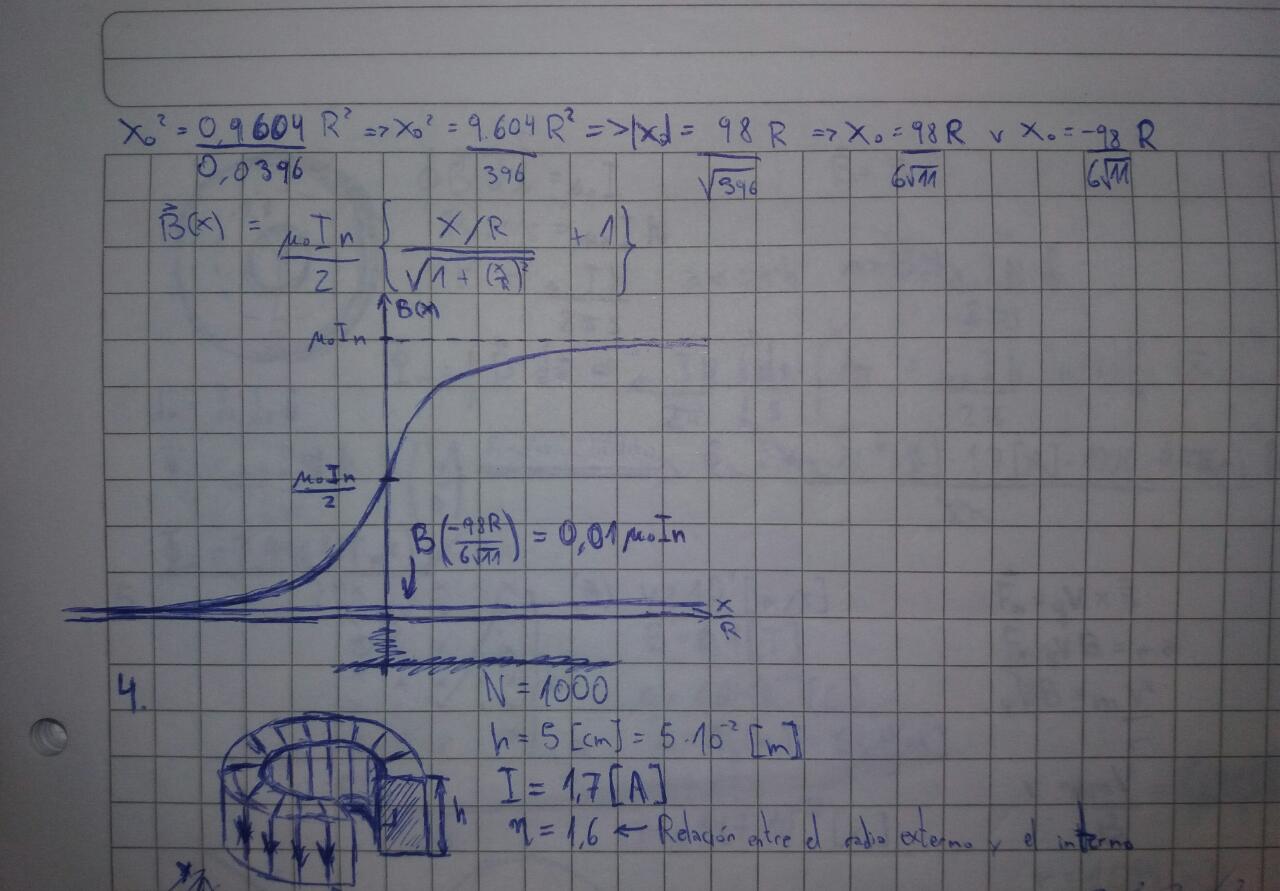 x₀² = 0,9604/0,0396 R² => x₀² = 9.604/396 R² => |x₀| = 98/√396 R => x₀ = 98/6√11 R v x₀ = -98/6√11 R
B⃗(x) = μ₀In/2 { X/R / √(1 + (x/R)²) + 1 }
B(x)
μ₀In
μ₀In/2
B(-98R/6√11) = 0,01 μ₀In
↓
x/R
4.
N = 1000
h = 5 [cm] = 5 · 10⁻² [m]
I = 1,7 [A]
h
η = 1,6 ← Relación entre el radio externo y el interno